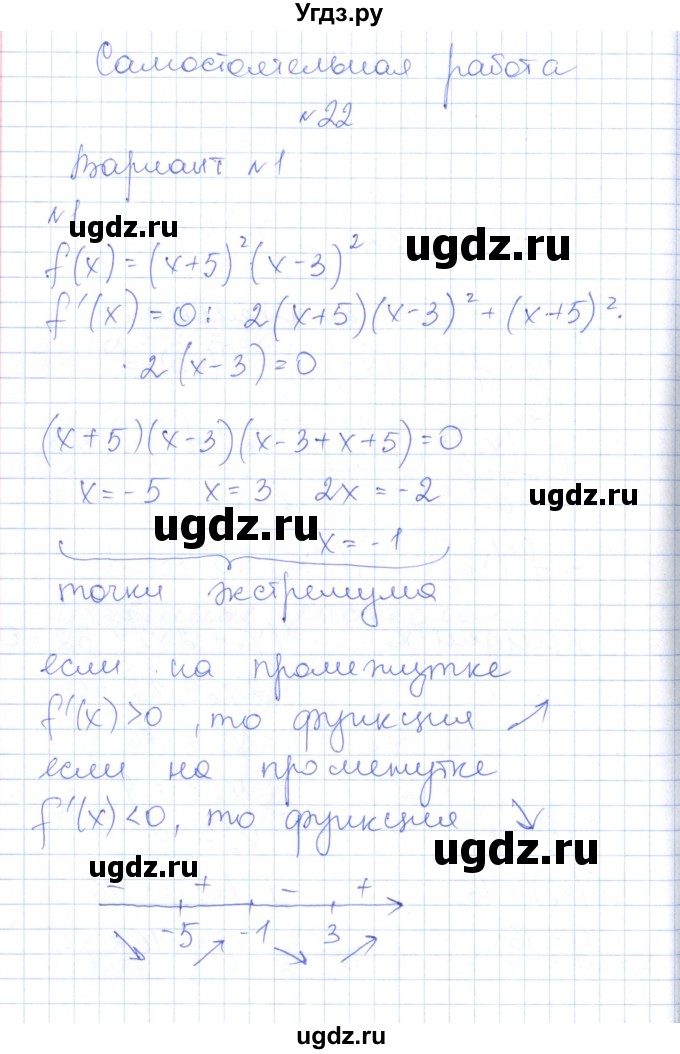 Угдз.ру
Самостоятельная работа
№22
Вариант №1
№1
ugdz.ru
ugdz.ru
f(x) = (x+5)²(x-3)²
f'(x) = 0: 2(x+5)(x-3)² + (x+5)²·
· 2(x-3) = 0
(x+5)(x-3)(x-3+x+5) = 0
x = -5 x = 3 2x = -2
ugdz.ru
ugdz.ru
x = -1
точки экстремума
если на промежутке
f'(x) > 0, то функция ↗
если на промежутке
f'(x) < 0, то функция ↘
ugdz.ru
ugdz.ru
- + - +
-5 -1 3
↘ ↗ ↘ ↗
ugdz.ru